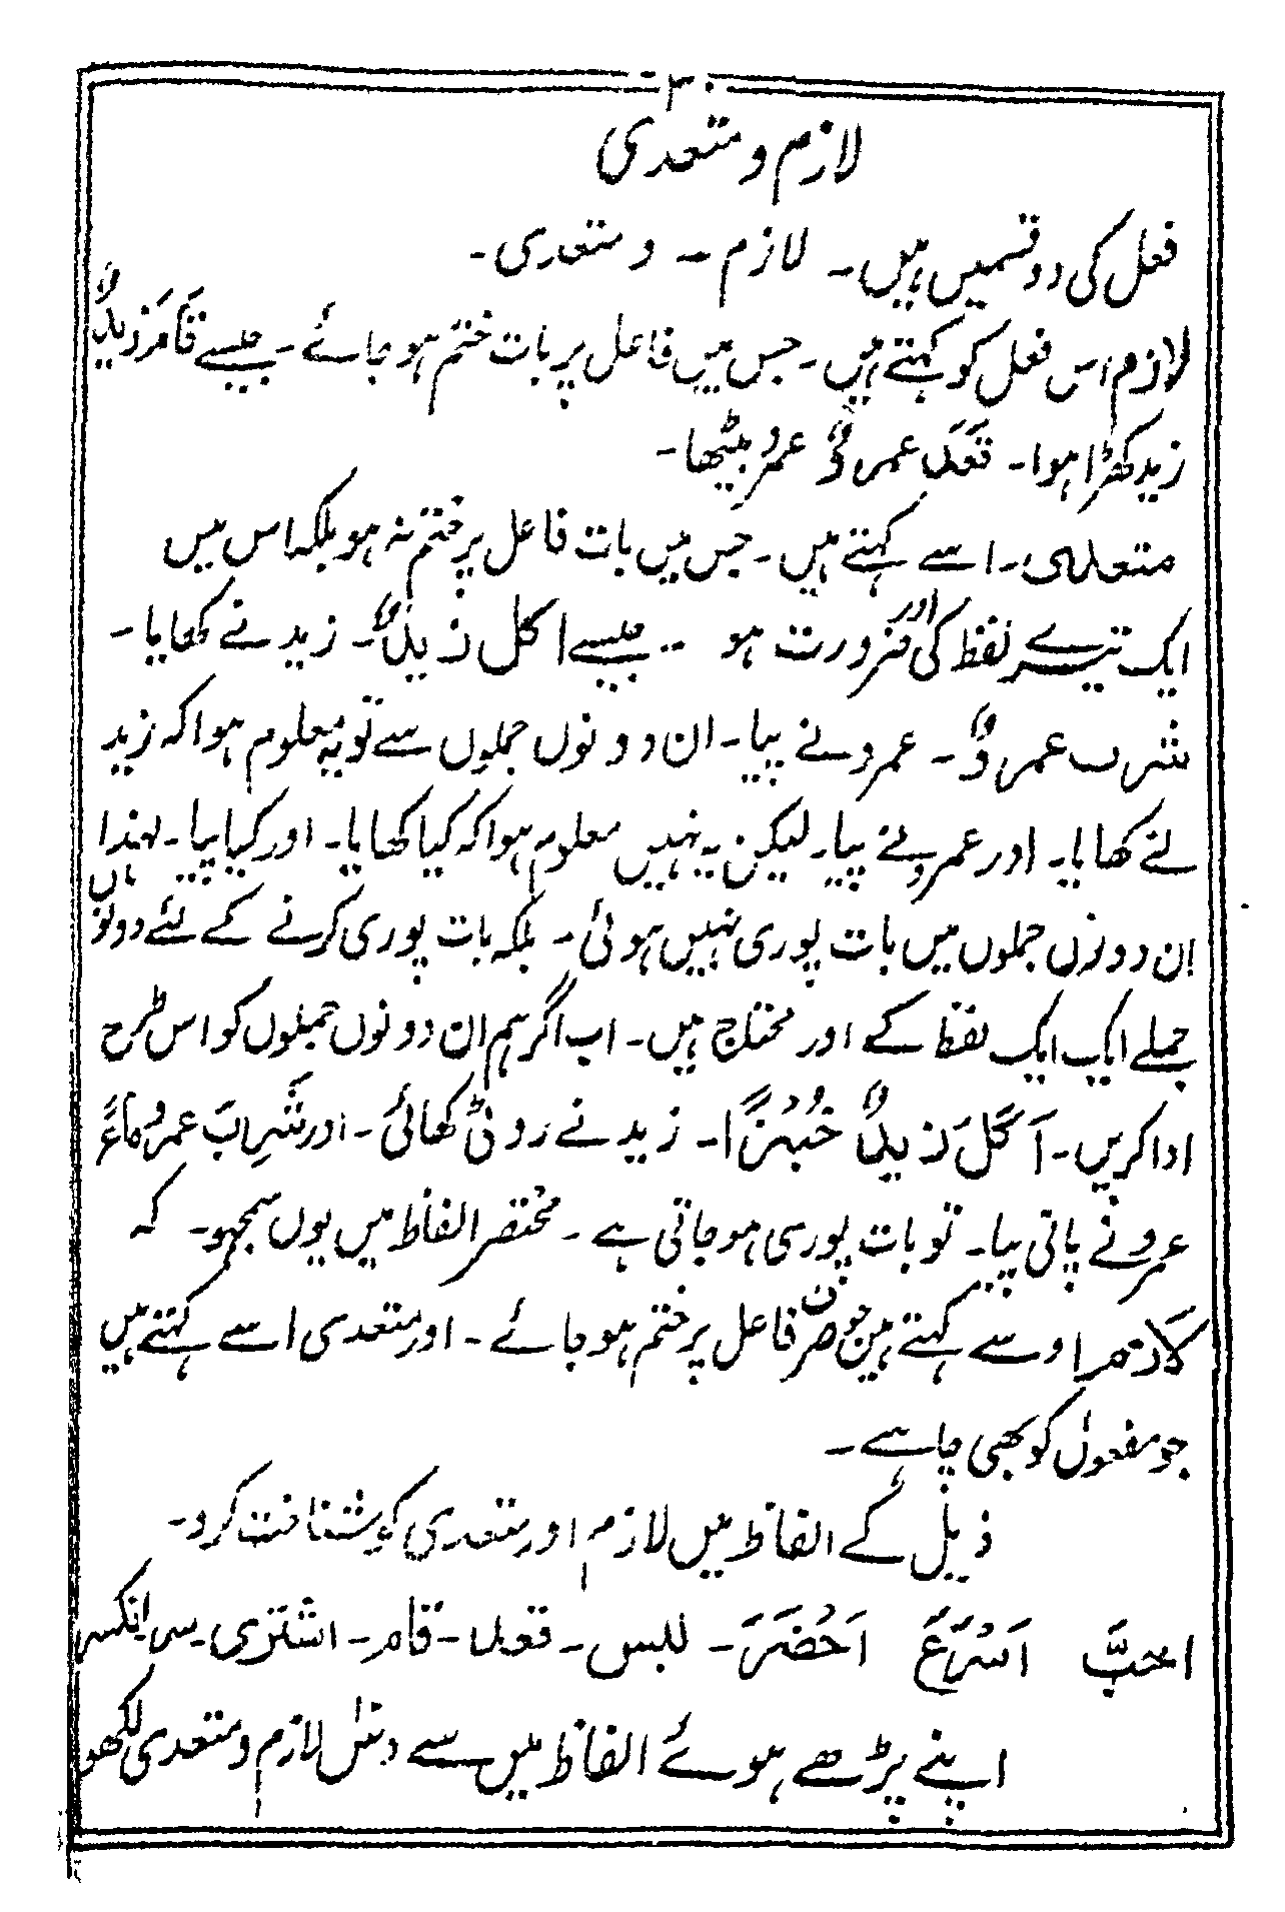 ۳۰
لازم و متعدی
فعل کی دو قسمیں ہیں۔ لازم ۔ و متعدی۔
لازم اس فعل کو کہتے ہیں۔ جس میں فاعل پر بات ختم ہو جائے۔ جیسے قَامَ زیدٌ
زید کھڑا ہوا۔ قَعَدَ عمروٌ عمرو بیٹھا۔
متعدی۔ اسے کہتے ہیں۔ جس میں بات فاعل پر ختم نہ ہو بلکہ اس میں
ایک تیسرے لفظ کی اور ضرورت ہو ۔۔ جیسے اکل زیدٌ۔ زید نے کھایا۔
شرب عمروٌ۔ عمرو نے پیا۔ ان دونوں جملوں سے تو یہ معلوم ہوا کہ زید
نے کھایا۔ اور عمرو نے پیا۔ لیکن یہ نہیں معلوم ہوا کہ کیا کھایا۔ اور کیا پیا۔ لہذا یہاں
ان دونوں جملوں میں بات پوری نہیں ہوئی۔ بلکہ بات پوری کرنے کے لئے دونو
جملے ایک ایک لفظ کے اور محتاج ہیں۔ اب اگر ہم ان دونوں جملوں کو اس طرح
ادا کریں۔ اَکَلَ زیدٌ خُبْزًا۔ زید نے روٹی کھائی۔ اور شَرِبَ عمرو مَاءً
عمرو نے پانی پیا۔ تو بات پوری ہو جاتی ہے۔ مختصر الفاظ میں یوں سمجھو۔ کہ
لَازم اوسے کہتے ہیں جو صرف فاعل پر ختم ہو جائے۔ اور متعدی اسے کہتے ہیں
جو مفعول کو بھی چاہے۔
ذیل کے الفاظ میں لازم اور متعدی کو شناخت کرو۔
احبَّ اَسْرَعَ اَحْضَرَ۔ لبس۔ قعد۔ قام۔ اشتری۔ انکسر
اپنے پڑھے ہوئے الفاظ میں سے دس لازم و متعدی لکھو